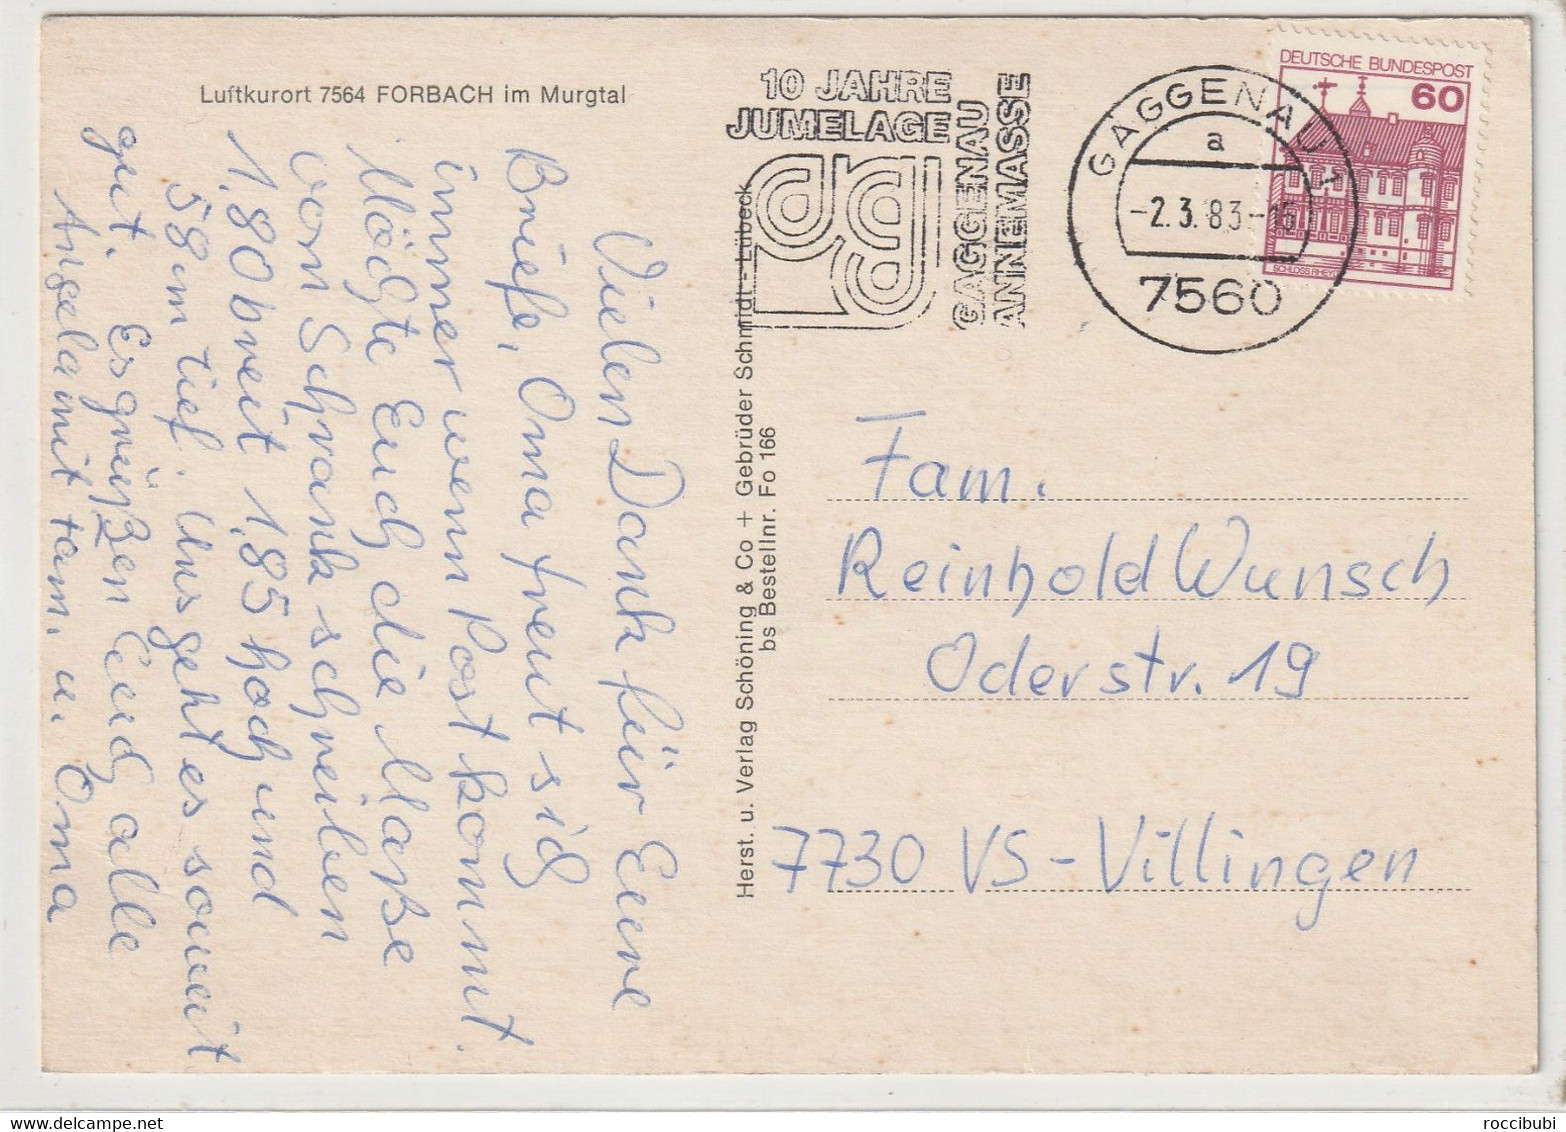 Luftkurort 7564 FORBACH im Murgtal
Vielen Dank für Eure
Briefe, Oma freut sich
immer wenn Post kommt.
Möchte Euch die Maße
vom Schrank schreiben
1,80 breit 1,85 hoch und
58 cm tief. Uns geht es soweit
gut. Es grüßen Euch alle
Angela mit Fam. u. Oma
Herst. u. Verlag Schöning & Co + Gebrüder Schmidt - Lübeck
bs Bestellnr. Fo 166
10 JAHRE
JUMELAGE
GAGGENAU
ANNEMASSE
GAGGENAU 1
a
-2.3.83-15
7560
DEUTSCHE BUNDESPOST
60
SCHLOSS RHEYDT
Fam.
Reinhold Wunsch
Oderstr. 19
7730 VS-Villingen
roccibubi